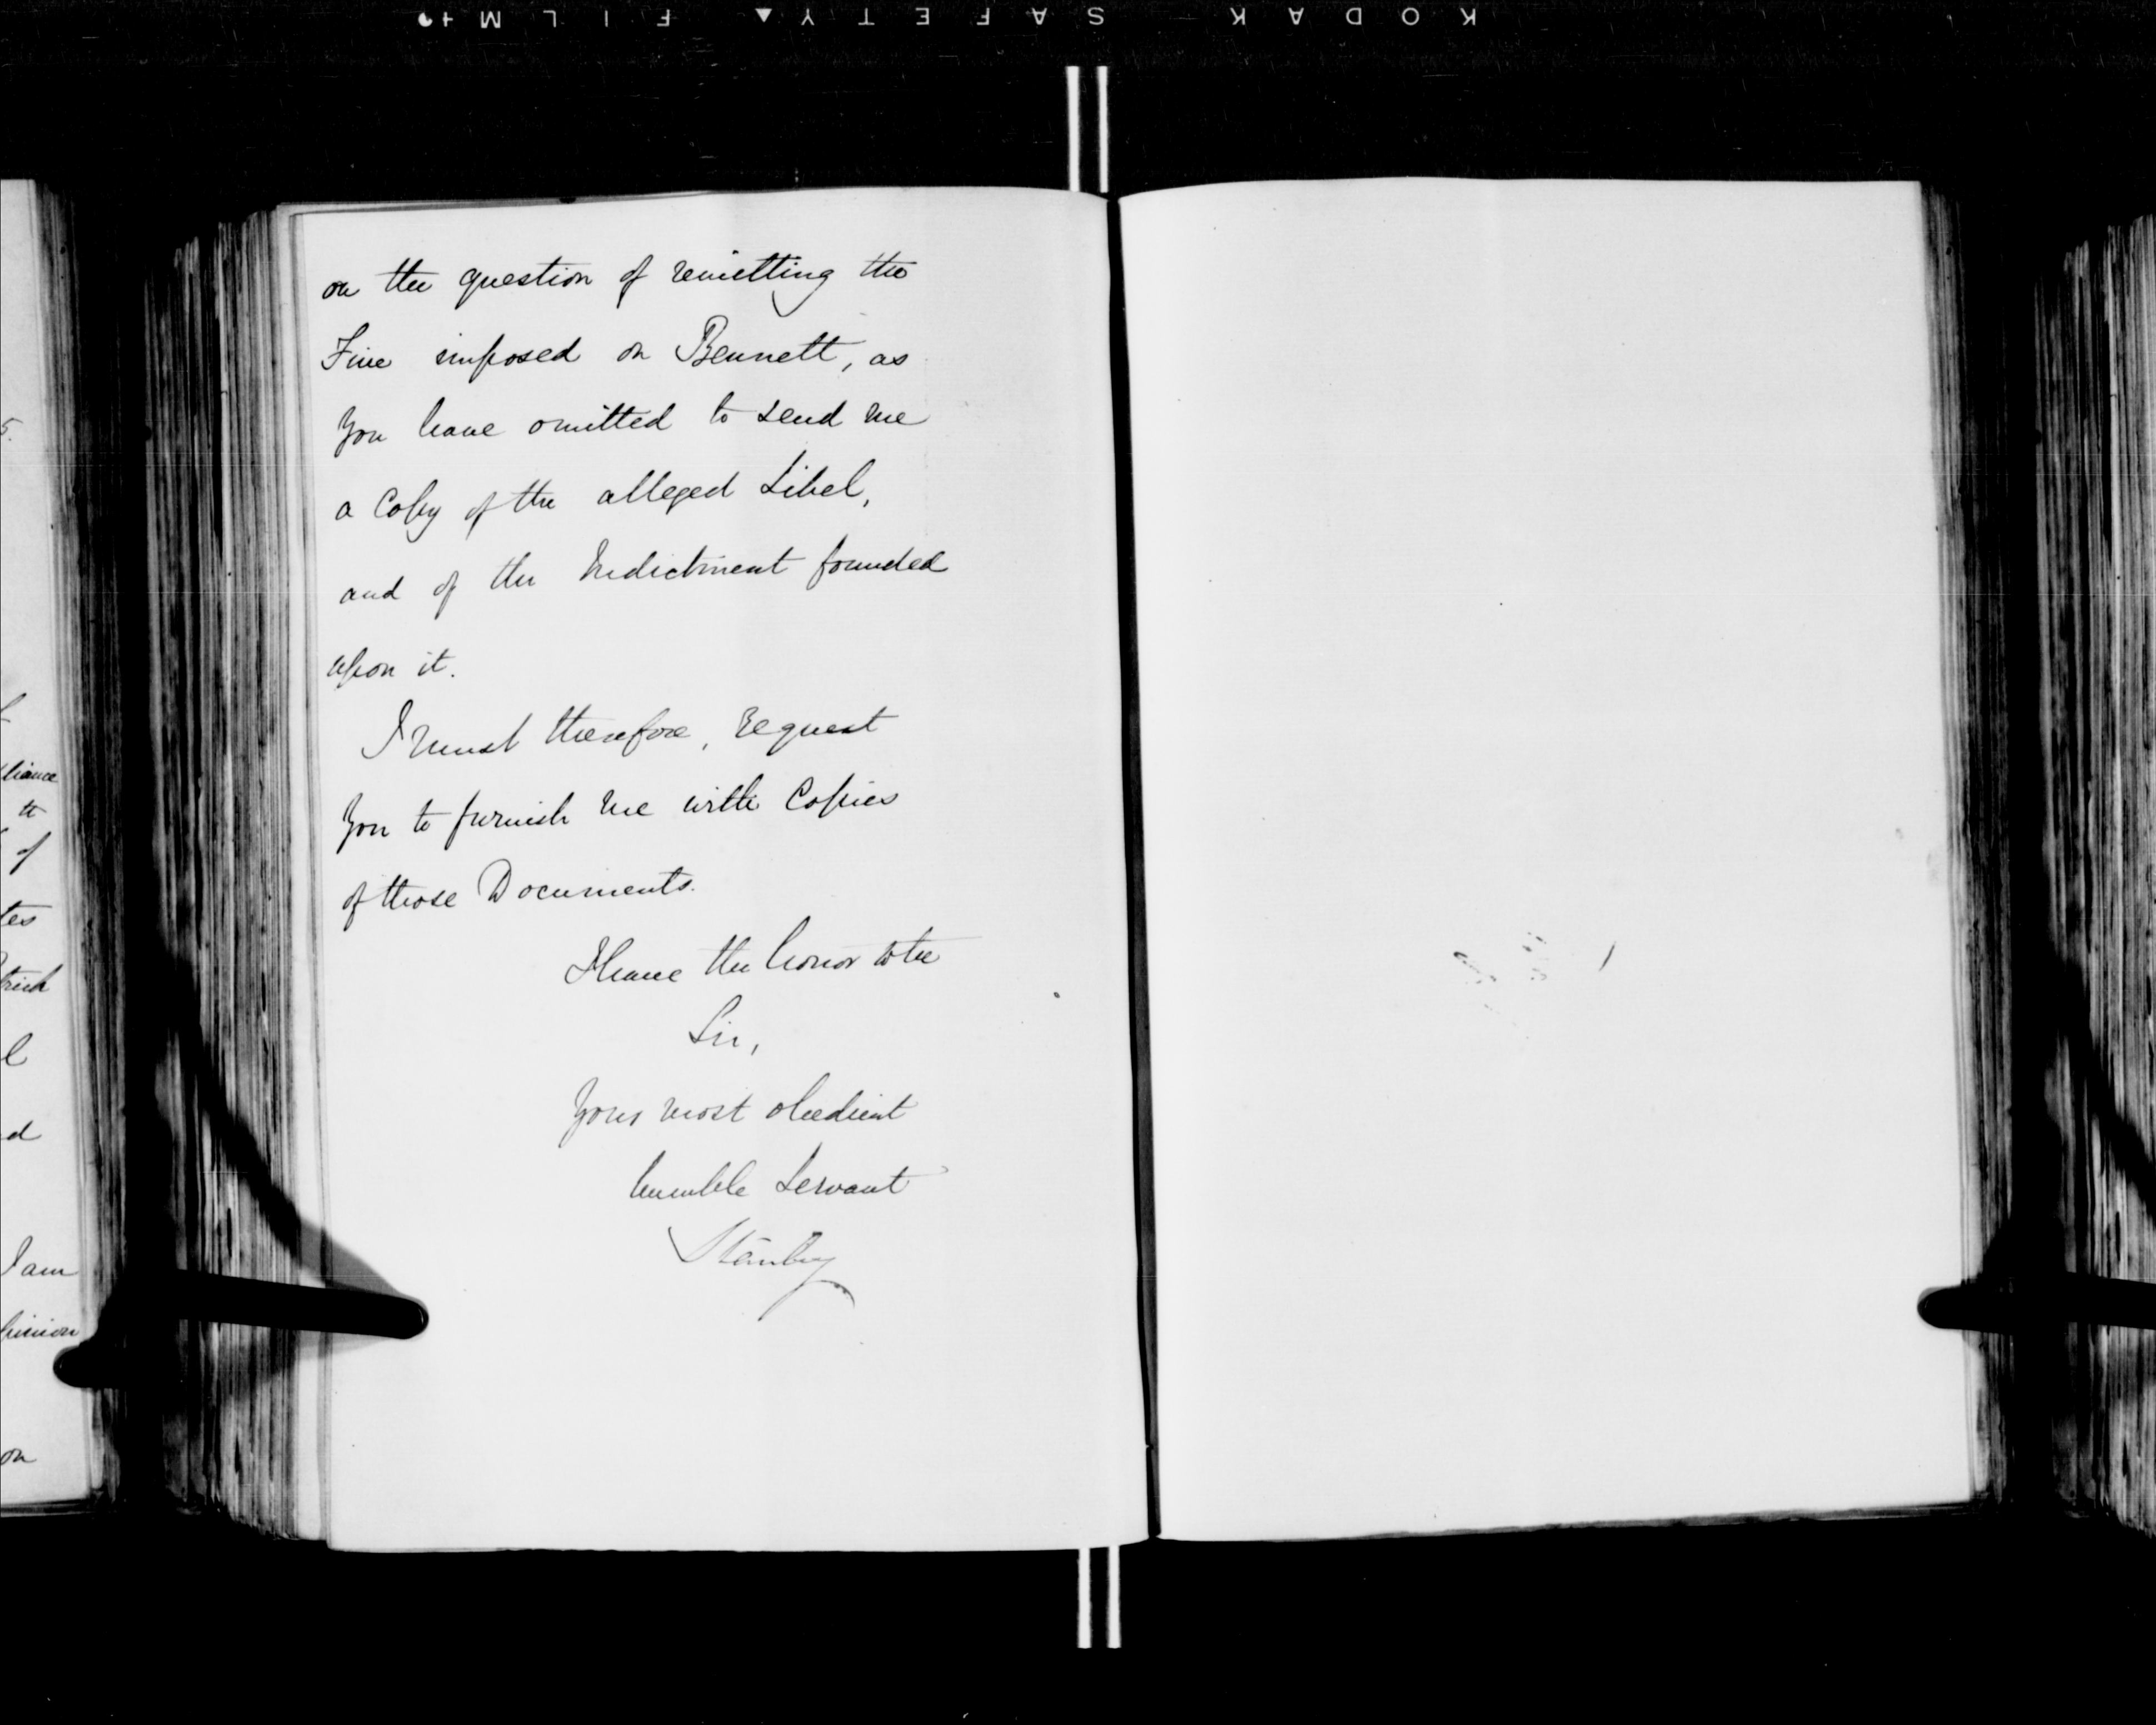 KODAK SAFETY FILM
on the question of remitting the
Fine imposed on Bennett, as
you have omitted to send me
a Copy of the alleged Libel,
and of the Indictment founded
upon it.
I must therefore, request
you to furnish me with Copies
of those Documents.
I have the honor to be
Sir,
Your most obedient
humble Servant
Stanley
liance
of
tes
l
d
I am
pinion
on